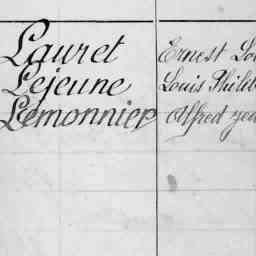 Lauret Ernest
Lejeune Louis
Lemonnier Alfred